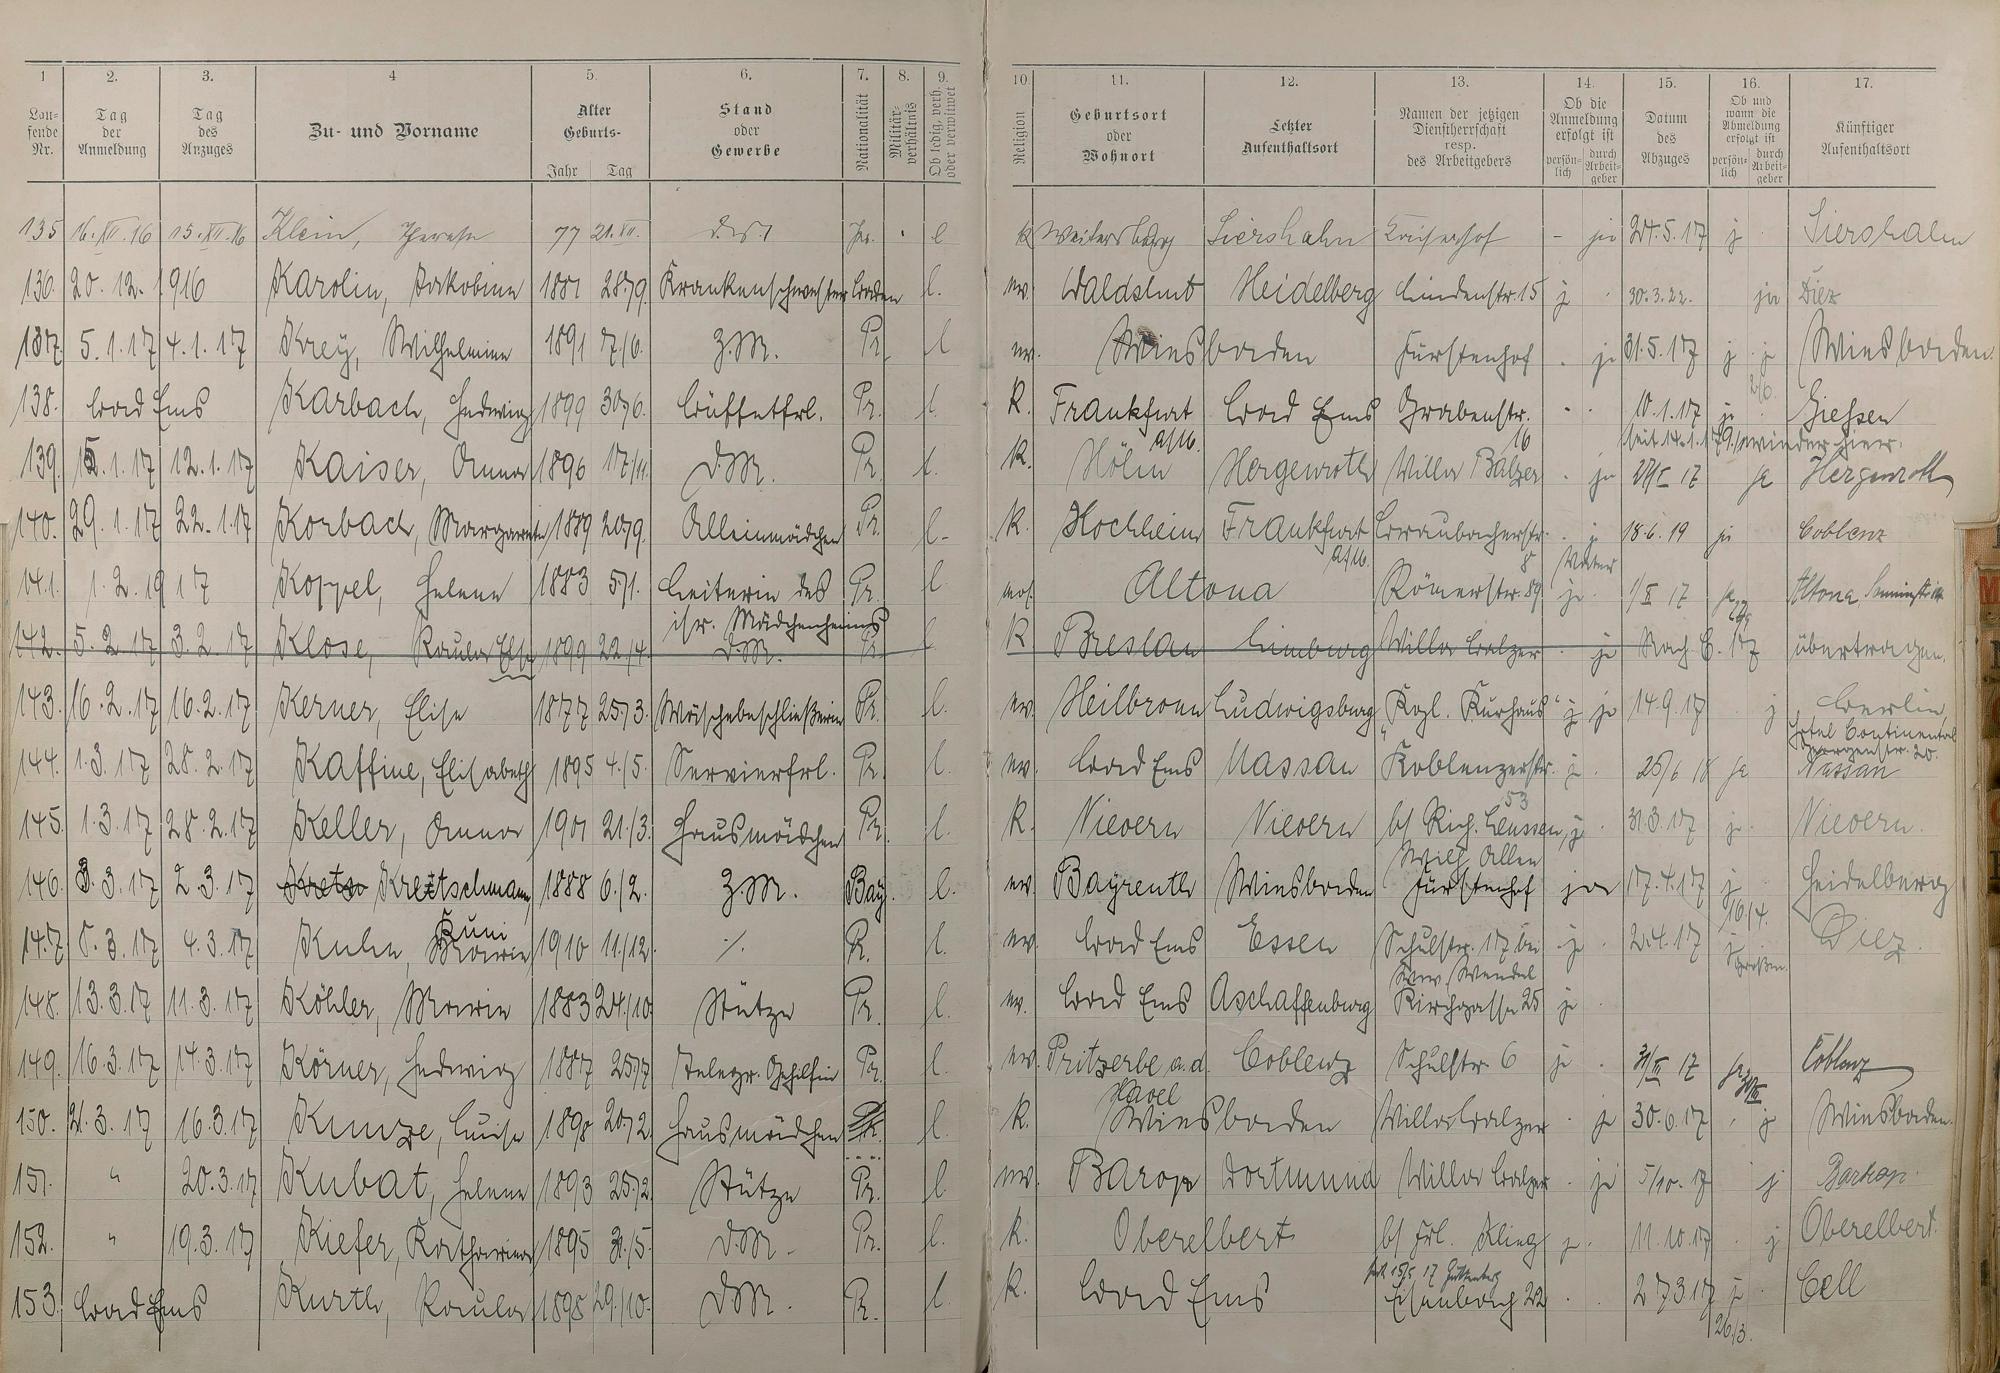 1 2. 3. 4 5. 6. 7. 8. 9. 10. 11. 12. 13. 14. 15. 16. 17.
Lau-
fende
Nr.
Tag
der
Anmeldung
Tag
des
Anzuges
Zu- und Vorname
Alter
Geburts-
Jahr Tag
Stand
oder
Gewerbe
Nationalität
Militär-
verhältnis
Ob ledig, verh.
oder verwitwet
Religion
Geburtsort
oder
Wohnort
Letzter
Aufenthaltsort
Namen der jetzigen
Dienstherrschaft
resp.
des Arbeitgebers
Ob die
Anmeldung
erfolgt ist
persön-
lich
durch
Arbeit-
geber
Datum
des
Abzuges
Ob und
wann die
Abmeldung
erfolgt ist
persön-
lich
durch
Arbeit-
geber
Künftiger
Aufenthaltsort
135 16.XII.16 15.XII.16 Klein, Therese 77 21.XII. Pr. l k Weitersburg Siershahn - ja 24.5.17 j Siershahn
136. 20.12.1916 Karolin, Jakobine 1881 28/9. Krankenschwester Baden l. ev. Waldshut Heidelberg Lindenstr. 15 j 30.3.22. ja Diez
137. 5.1.17 4.1.17 Krey, Wilhelmine 1891 7/6. Z.M. Pr. l ev. Wiesbaden Fürstenhof ja 31.5.17 j j Wiesbaden.
138. Bad Ems Karbach, Hedwig 1899 30/6. Büffetfrl. Pr. l. K. Frankfurt a/M. Bad Ems Grabenstr. 16 10.1.17 Giehsen
wieder hier.
139. 12.1.17 12.1.17 Kaiser, Anna 1896 17/11. D.M. Pr. l. K. Höhn Hergenroth Villa Balzer ja 17 ja Hergenroth
140. 29.1.17 22.1.17 Korbach, Margarete 1889 20/9. Alleinmädchen Pr. l. K. Hochheim Frankfurt a/M. Braubacherstr. 8 j 18.6.19 ja Coblenz
141. 1.2.1917 Koppel, Helene 1883 5/1. Leiterin des
isr. Mädchenheims Pr. l Altona Römerstr. 89 ja 17 ja Altona
142. 5.2.17 3.2.17 Klose, Paula Else 1899 22/4. D.M. Pr. l K Breslau Limburg Villa Balzer ja Nach B. 17 übertragen.
143. 16.2.17 16.2.17 Kerner, Elise 1877 25/3. Wäschebeschließerin Pr. l. ev. Heilbronn Ludwigsburg „Kgl. Kurhaus“ j ja 14.9.17 j Berlin,
Hotel Continental
Georgenstr. 20.
144. 1.3.17 28.2.17 Kaffine, Elisabeth 1895 4./5. Servierfrl. Pr. l. ev. Bad Ems Nassau Koblenzerstr. 53 j. 25/6 18 ja Nassau
145. 1.3.17 28.2.17 Keller, Anna 1901 21./3. Hausmädchen Pr. l. K. Nievern Nievern b/ Rich. Leussen, j 31.3.17 j. Nievern.
Wilh. Allee
146. 3.3.17 2.3.17 Kretschmann, 1888 6./2. Z.M. Bay. l. ev Bayreuth Wiesbaden Fürstenhof ja 17.4.17 j 16/4. Heidelberg
147. 5.3.17 4.3.17 Kuhn, Kuni Marie 1910 11/12. ·/. Pr. l. ev. Bad Ems Essen Schulstr. 17 bei
Wwe. Wendel j. 2.4.17 j. Diez.
148. 13.3.17 11.3.17 Köhler, Marie 1883 24./10. Stütze Pr. l. ev. Bad Ems Aschaffenburg Kirchgasse 25 ja
149. 16.3.17 14.3.17 Körner, Hedwig 1887 25/7 Telegr. Gehilfin Pr. l. ev. Pritzerbe a.d.
Havel Coblenz Schulstr. 6 ja 31/III 17 ja 30/III Coblenz
150. 21.3.17 16.3.17 Kunze, Luise 1898 20/2. Hausmädchen Pr. l. K. Wiesbaden Villa Balzer ja 30.6.17 j Wiesbaden.
151. " 20.3.17 Kubat, Helene 1893 25/2. Stütze Pr. l. ev. Barop Dortmund Villa Balzer ja 5/10.17 j Barkop.
152. " 19.3.17 Kiefer, Katharina 1895 31./5. D.M. Pr. l. k. Oberelbert b/ Frl. Kling j. 11.10.17 j Oberelbert.
153. Bad Ems Kurth, Paula 1898 29./10. D.M. Pr. l K. Bad Ems 22 27.3.17 j. 26/3. Cell